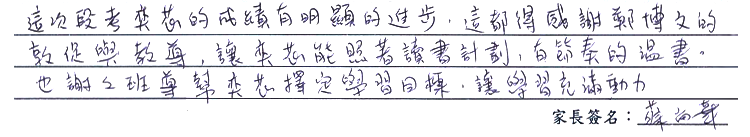 這次段考奕蕊的成績有明顯的進步,這都得感謝鄭博文的
敦促與教導,讓奕蕊能照著讀書計劃,有節奏的溫書。
也謝々班導幫奕蕊擇定學習目標,讓學習充滿動力
家長簽名:蔡